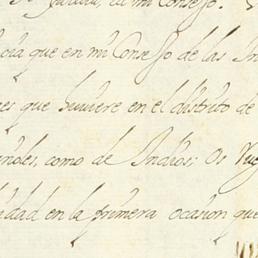 mi Consejo.
cia que en mi Consejo de las In
es que huuiere en el distrito de
ñoles, como de Indios; Os
idad en la primera ocasion que